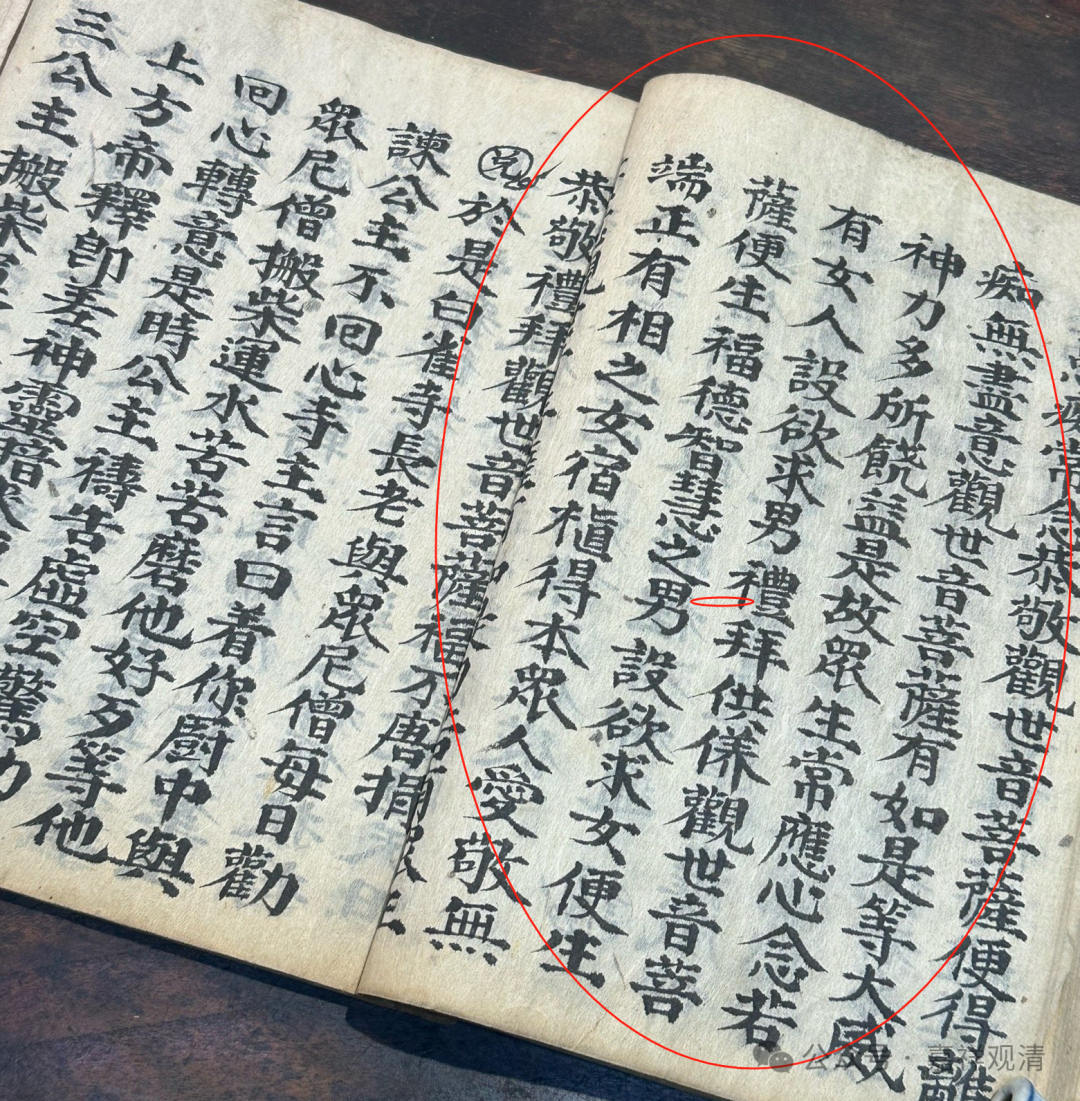 癡常念恭敬觀世音菩薩便得離
痴無盡意觀世音菩薩有如是等大威
神力多所饒益是故眾生常應心念若
有女人設欲求男禮拜供養觀世音菩
薩便生福德智慧之男設欲求女便生
端正有相之女宿植得本眾人愛敬無
恭敬禮拜觀世音菩薩福不唐捐
於是白雀寺長老與眾尼僧每日勸
諫公主不回心寺主言曰着你廚中與
眾尼僧搬柴運水苦苦磨他好歹等他
回心轉意是時公主禱告虛空驚動
上方帝釋卽差神靈暗
三公主搬柴
公众号·嘉祥观清